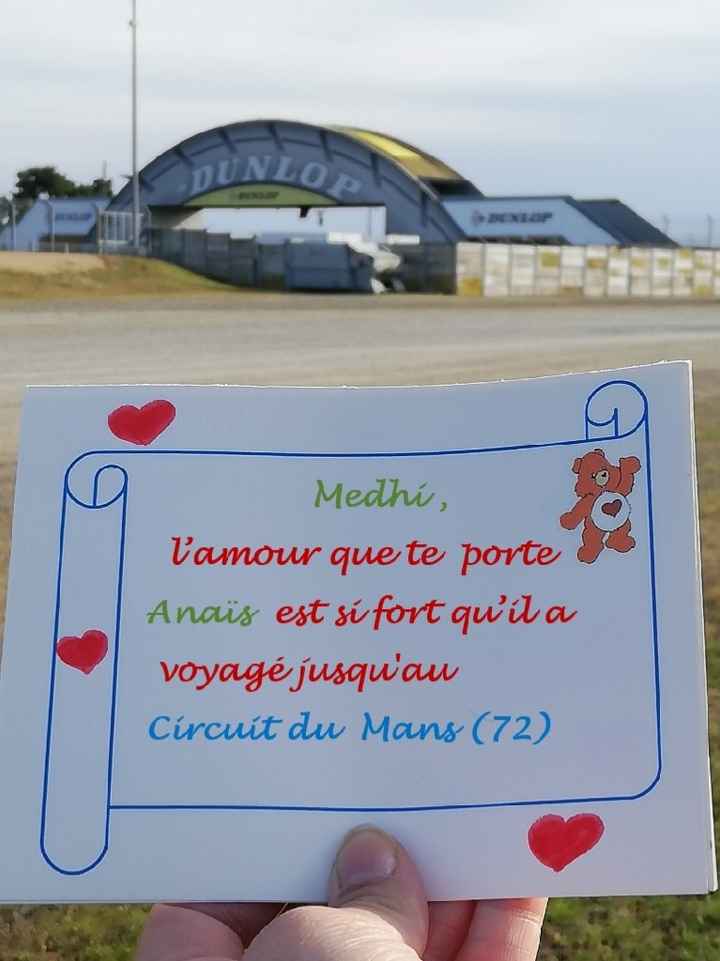 DUNLOP
DUNLOP
DUNLOP
DUNLOP
Medhi,
l'amour que te porte
Anaïs est si fort qu'il a
voyagé jusqu'au
Circuit du Mans (72)